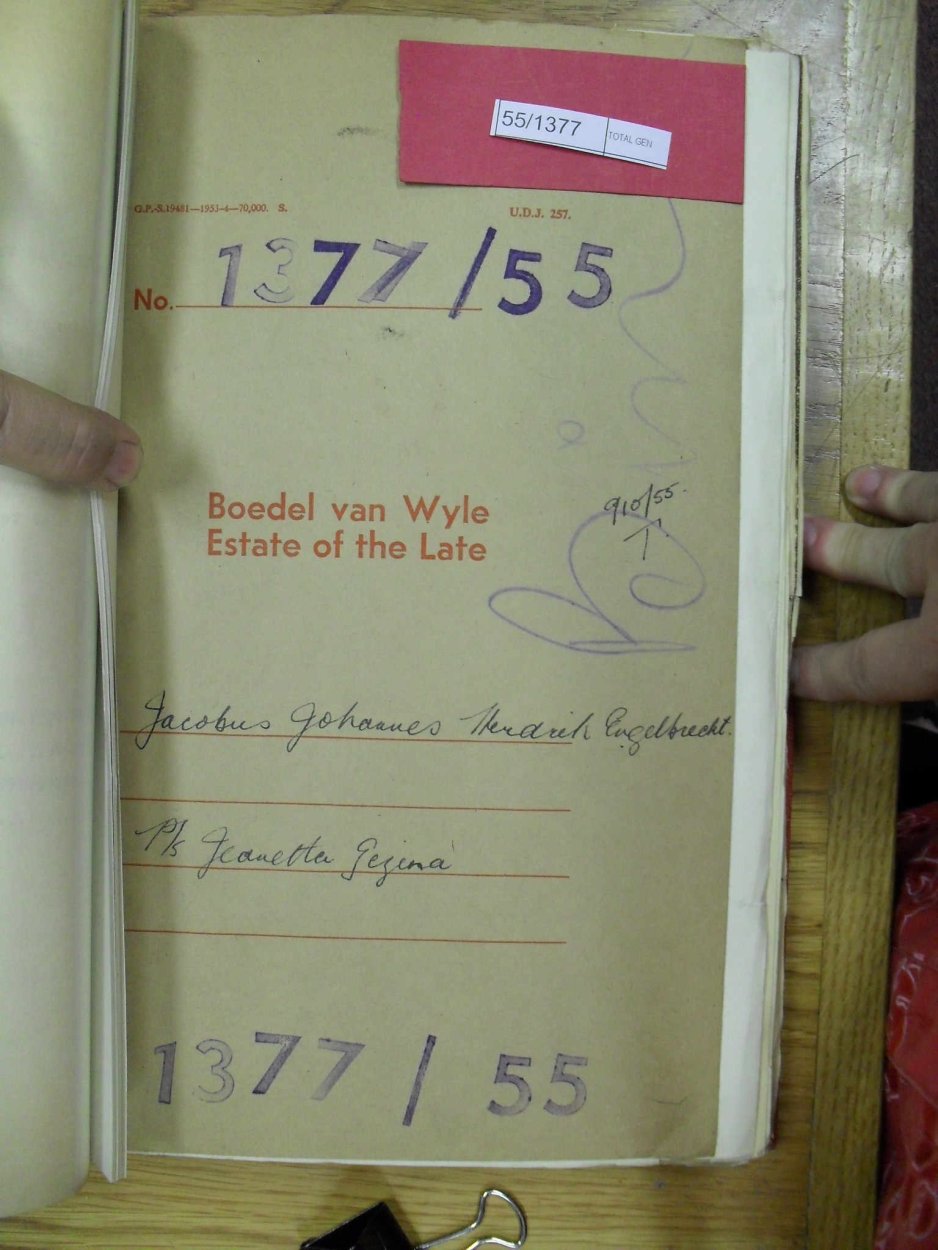 55/1377 TOTAL GEN
G.P.-S.19481—1953-4—70,000. S. U.D.J. 257.
No. 1377/55
Boedel van Wyle
Estate of the Late
910/55.
Jacobus Johannes Hendrik Engelbrecht.
P/s Jeanetta Gezina
1377/55